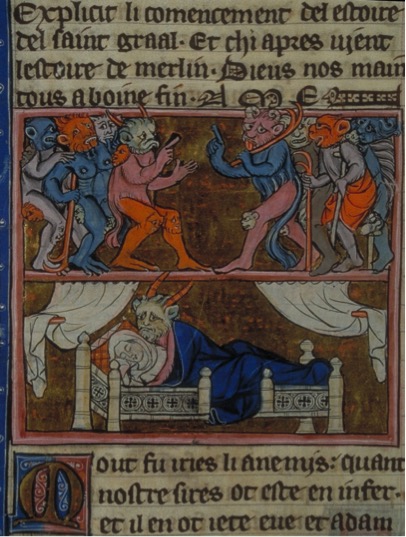 Explicit li comencement del estoire
del saint graal. Et chi apres uient
lestoire de merlin. Dieus nos main
tous a boine fin. A M E
Mout fu iries li anemis: quant
nostre sires ot este en infer.
et il en ot iete eue et adam